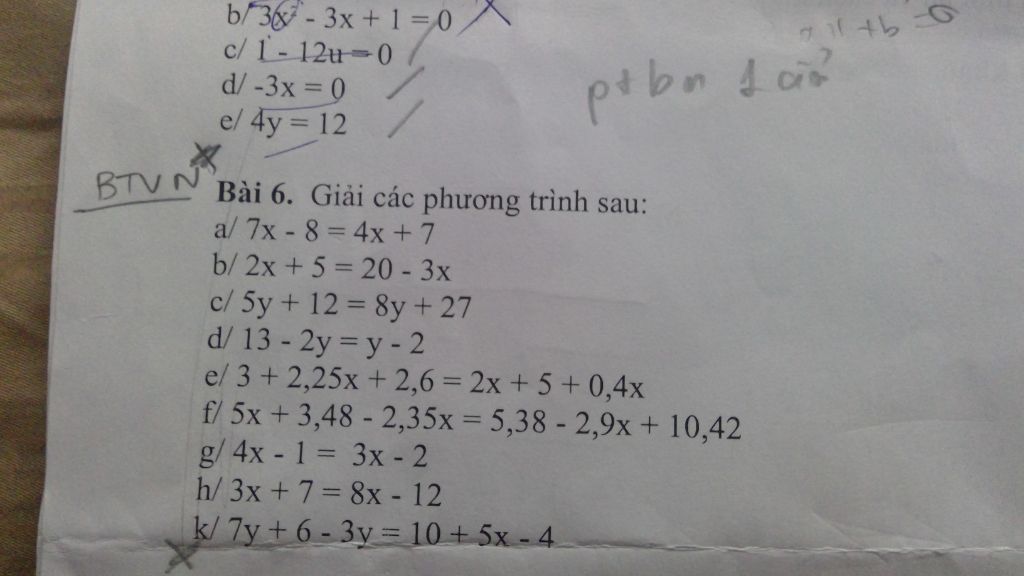 b/ 3x² - 3x + 1 = 0
c/ 1 - 12u = 0
d/ -3x = 0
e/ 4y = 12
pt bn 1 ẩn
BTVN
Bài 6. Giải các phương trình sau:
a/ 7x - 8 = 4x + 7
b/ 2x + 5 = 20 - 3x
c/ 5y + 12 = 8y + 27
d/ 13 - 2y = y - 2
e/ 3 + 2,25x + 2,6 = 2x + 5 + 0,4x
f/ 5x + 3,48 - 2,35x = 5,38 - 2,9x + 10,42
g/ 4x - 1 = 3x - 2
h/ 3x + 7 = 8x - 12
k/ 7y + 6 - 3y = 10 + 5x - 4